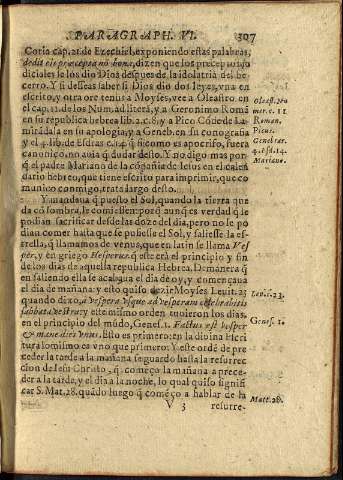 PARAGRAPH. VI. 307
Coria cap. 21. de Ezechiel, exponiendo estas palabras,
dedi eis præcepta nō bona, dizen que los preceptos ju
diciales se los dio Dios despues de la idolatria del be-
cerro. Y si desseas saber si Dios dio dos leyes, vna en
escrito, y otra ore tenus a Moyses, vee a Oleastro en
el cap. 11. de los Num. ad literā, y a Geronimo Romā
en su republica hebrea lib. 2. c. 8. y a Pico Cōde de La
mirādala en su apologia, y a Geneb. en su conografia
y el 4. lib. de Esdras c. 14. q̄ si como es apocrifo, fuera
canonico, no auia q̄ dudar desto. Y no digo mas por-
q̄ el padre Mariano de la cōpañia de Iesus en el calen
dario hebreo, que tiene escrito para imprimir, que co
munico conmigo, trata largo desto.
Y mandaua q̄ puesto el Sol, quando la tierra que
da cō sombra, le comiessen: porq̄ aunq̄ es verdad q̄ le
podian sacrificar desde las doze del dia, pero no le po
dian comer hasta que se pusiesse el Sol, y saliesse la es-
trella, q̄ llamamos de venus, que en latin se llama Ves
per, y en griego Hesperus, q̄ este era el principio y fin
de los dias de aquella republica Hebrea. De manera q̄
en saliendo ella se acabaua el dia de oy, y començaua
el dia de mañana: y esto quiso dezir Moyses Leuit. 23
quando dixo, a vespera vsque ad vesperam celebrabitis
sabbata vestra: y este mismo orden tuuieron los dias,
en el principio del mūdo, Genes. 1. Factus est vesper
& mane dies vnus. Esto es primero: en la diuina Escri
tura lo mismo es vno que primero: Y este ordē de pre
ceder la tarde a la mañana se guardo hasta la resurrec
cion de Iesu Christo, q̄ començo la mañana a prece-
der a la tarde, y el dia a la noche, lo qual quiso signifi
car S. Mat. 28. quādo luego q̄ començo a hablar de la
V 3 resurre-
Oleast. ꝓo
mer. c. 11
Roman.
Picus.
Genebrar.
4. Esd. 14.
Mariano.
Leuit. 23.
Genes. 1.
Matt. 28.